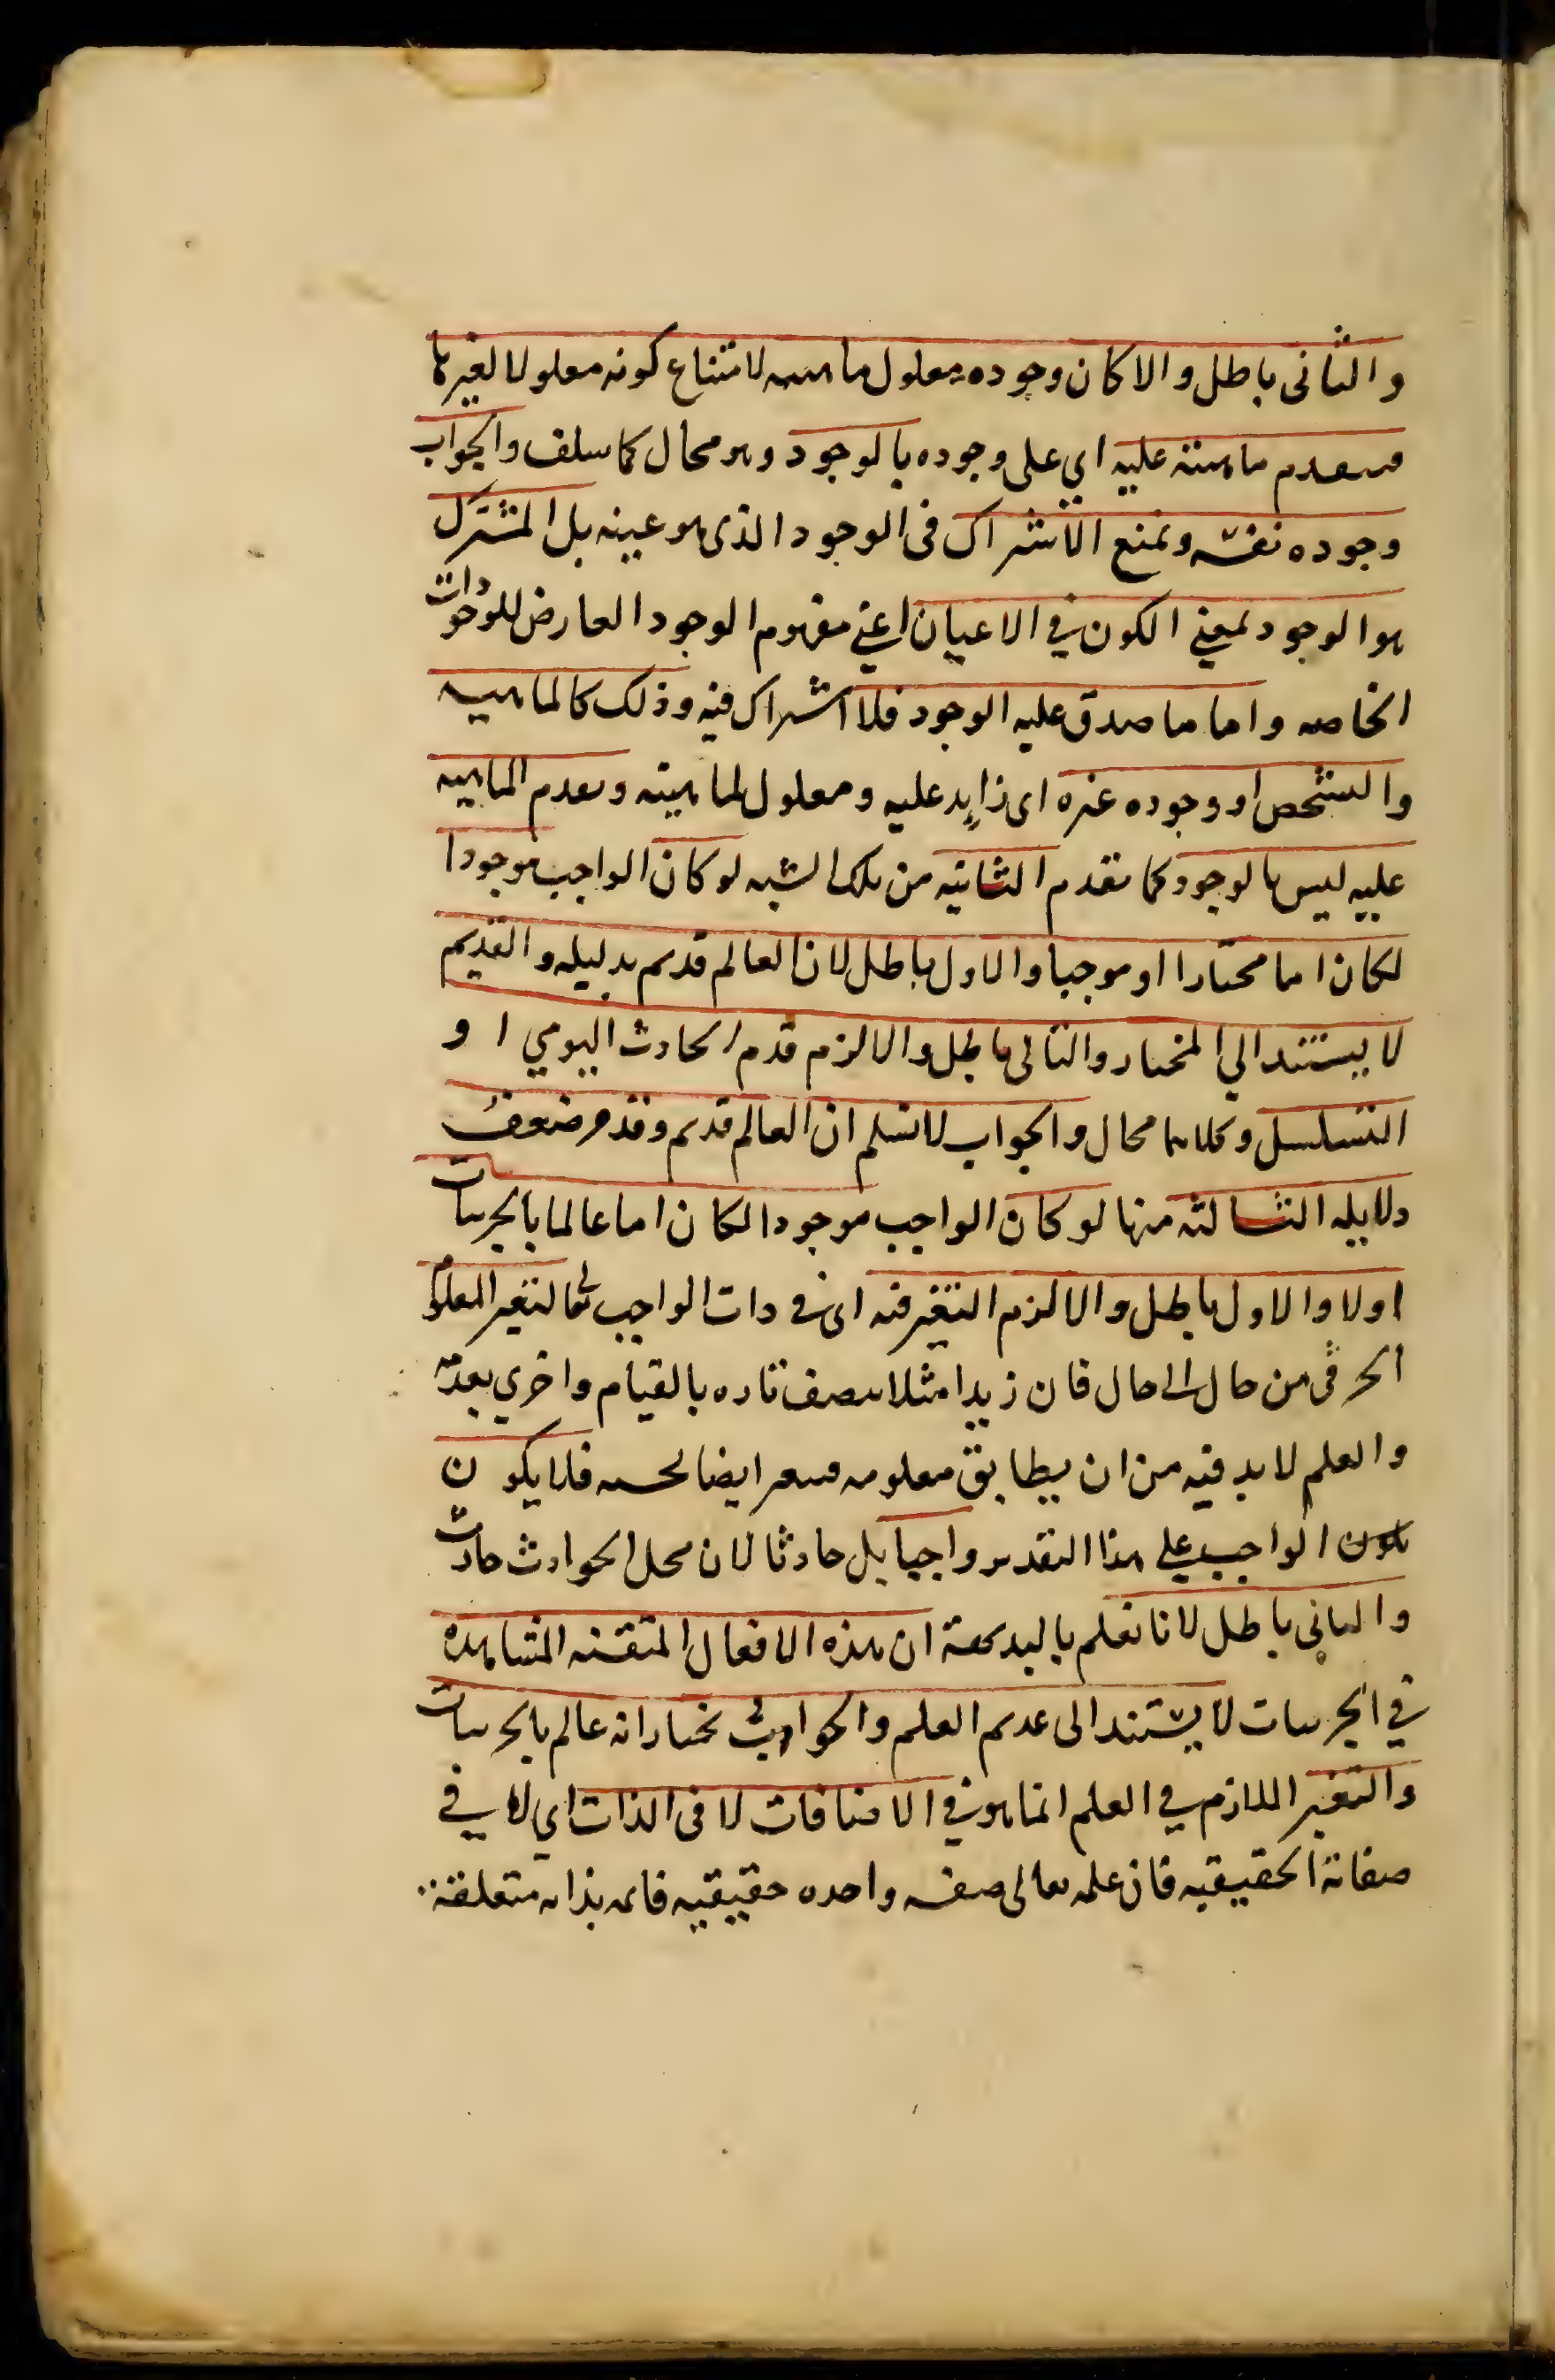 والثانى باطل والا كان وجوده معلول ماهيته لامتناع كونه معلولا لغيرها
فيتقدم ماهيته عليه اي على وجوده بالوجود وهو محال كما سلف والجواب
وجوده نفسه ونمنع الاشتراك فى الوجود الذى هو عينه بل المشترك
هو الوجود بمعني الكون في الاعيان اعني مفهوم الوجود العارض للوجودات
الخاصه واما ما صدق عليه الوجود فلا اشتراك فيه وذلك كالماهيه
والتشخص او وجوده غيره اى زايد عليه ومعلول لماهيته وتتقدم الماهيه
عليه ليس بالوجود كما تقدم الثانيه من تلك الشبه لو كان الواجب موجودا
لكان اما مختارا او موجبا والاول باطل لان العالم قديم بدليله والقديم
لا يستند الي المختار والثانى باطل والا لزم قدم الحادث اليومي او
التسلسل وكلاهما محال والجواب لا نسلم ان العالم قديم وقد مر ضعف
دلايله الثالثه منها لو كان الواجب موجودا لكان اما عالما بالجزييات
اولا والاول باطل والا لزم التغير فيه اى في ذات الواجب تعالى لتغير المعلوم
الجزئى من حال الى حال فان زيدا مثلا يتصف تاره بالقيام واخري بعدمه
والعلم لا بد فيه من ان يطابق معلومه فيتغير ايضا بحسبه فلا يكون
يكون الواجب على هذا التقدير واجبا بل حادثا لان محل الحوادث حادث
والثانى باطل لانا نعلم بالبديهة ان هذه الافعال المتقنه المشاهده
في الجزييات لا يستند الى عديم العلم والجواب نختار انه عالم بالجزييات
والتغير اللازم في العلم انما هو في الاضافات لا فى الذات اي لا في
صفاتة الحقيقيه فان علمه تعالى صفه واحده حقيقيه قائمه بذاته متعلقة